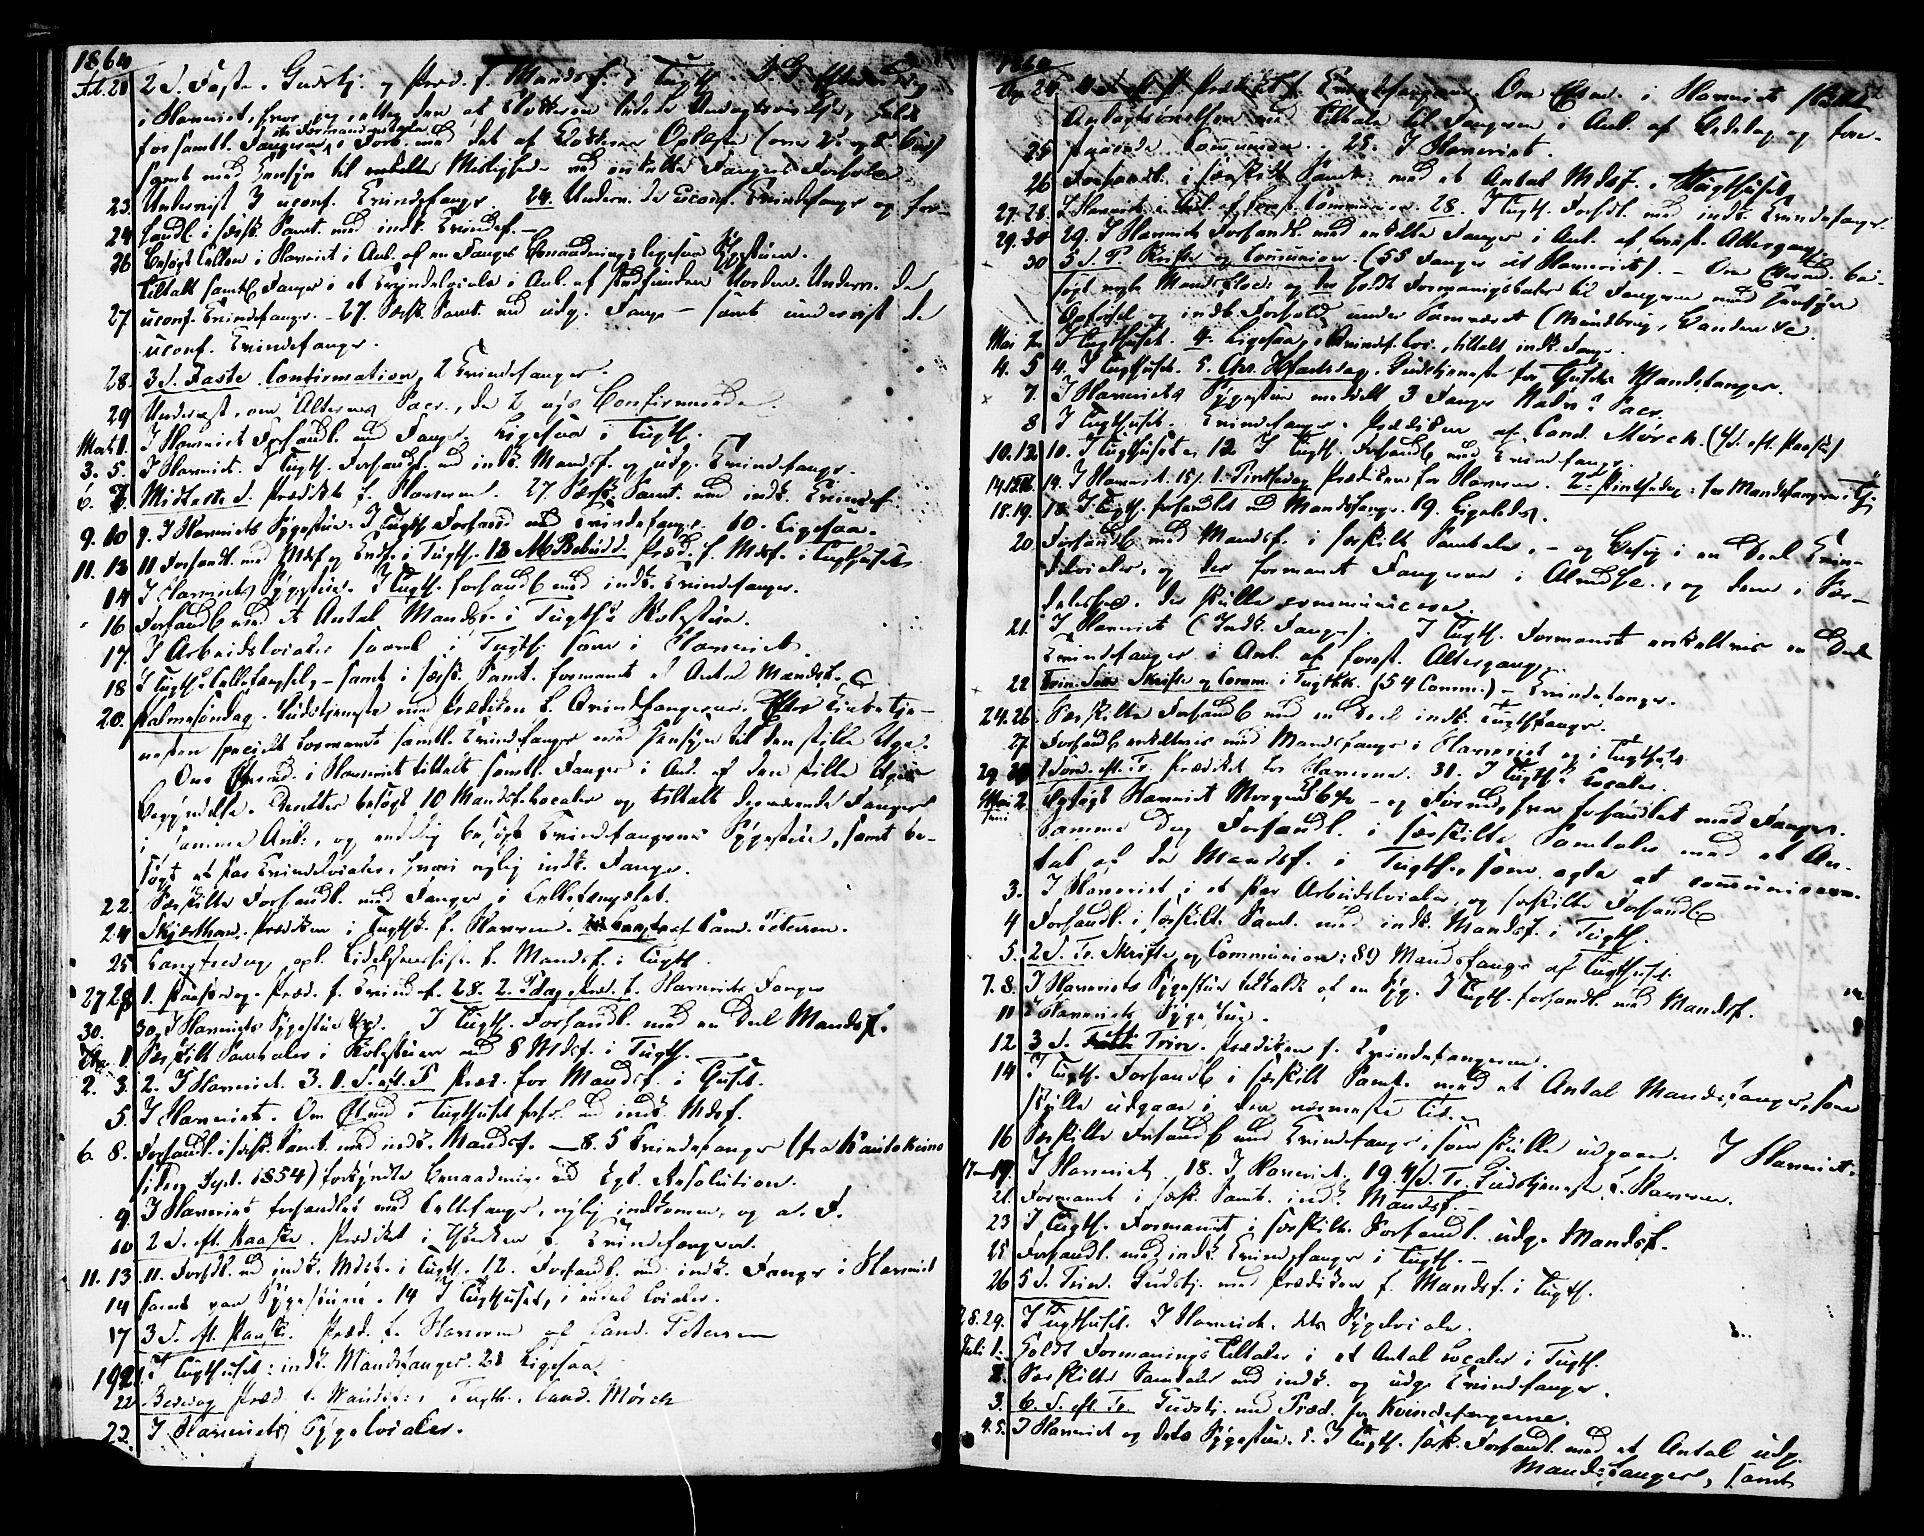 1864
Feb. 21 2 S. i Faste. Gudstj. og Præd. f. Mandsf. i Tugth.
i Slaveriet, hvor jeg
for samtl. Fangerne, i Forb. med det af Klokkeren Oplæste
samt med Hensyn til enkelte Misligheder ved enkelte Fangers Forhold.
23. Underviist 3 uconf. Qvindefanger. 24. Underv. de uconf. Qvindefanger og for-
24 handl. i særsk. Samt. med indk. Qvindef. –
26 Besøgt Cellen i Slaveriet i Anl. af en Fanges Benaadning, ligesaa Sygestuen.
Tiltalt samtl. Fanger i et Qvindelocale i Anl. af Underv. de
27 uconf. Qvindefanger. – 27. Særsk. Samt. med udg. Fange – samt underviist de
uconf. Qvindefanger.
28. 3 S. i Faste. Confirmation, 2 Qvindefanger.
29 Underviist, om Alterens Sacr., de 2 nys Confirmerede.
Marts 1. I Slaveriet Forhandl. med Fanger. Ligesaa i Tugth.
3. 5. I Slaveriet. I Tugth. Forhandl. med indk. Mandsf. og udg. Qvindefanger.
6. 7. Midfaste S. Prædiket f. Slaverne. 7. Særsk. Samt. med indk. Qvindef.
9. 10 9. I Slaveriets Sygestue. I Tugth. Forhandl. med Qvindefanger. 10. Ligesaa.
11. 13 11 Forhandl. med Mdsf. og Qvdf. i Tugth. 13 M. Bebud. Præd. f. Mdsf. i Tugthuset.
14 I Slaveriets Sygestue. I Tugth. forhandl. med indk. Qvindefanger.
16 Forhandl. med et Antal Mandsf. i Tugth.s Skolestue.
17. I Arbeidslocaler saavel i Tugth. som i Slaveriet.
18 I Tugth.s Cellefængsel, – samt i særsk. Samt. formanet et Antal Mandsf.
20. Palmesøndag. Gudstjeneste med Prædiken f. Qvindefangerne. Efter Gudstje-
nesten specielt formanet samtl. Qvindefanger med Hensyn til den stille Uge.
Om Efterm. i Slaveriet tiltalt samtl. Fanger i Anl. af den stille Uges
Begyndelse. Derefter besøgt 10 Mandsf. Localer og tiltalt derværende Fanger
i samme Anl., og endelig besøgt Qvindefangernes Sygestue, samt be-
søgt et Par Qvindelocaler, hvori nylig indk. Fanger.
22. Særskilte Forhandl. med Fanger i Cellefængslet.
24 Skjærthorsd. Prædiken i Tugthk. f. Slaverne. af Cand. Petersen.
25 Langfredag opl. Lidelseshist. f. Mandsf. i Tugth.
27 28. 1. Paaskedag. Præd. f. Qvindef. 28. 2. P.dag Præd. f. Slaveriets Fanger
30. 30. I Slaveriets Sygestue. I Tugth. Forhandl. med en Deel Mandsf.
Apr. 1. Særskilt Samtaler i Skolestuen med 8 Mdsf. i Tugth.
2. 3. 2. I Slaveriet. 3. 1. S. eft. P. Præd. for Mandsf. i Tugth.
5. I Slaveriet. Om Efterm. i Tugthuset forh. med indk. Mdsf.
6. 8. Forhandl. i særsk. Samt. med indk. Mandsf. – 8. 5 Qvindefanger (fra Kautokeino
siden Sept. 1854) forkyndte Benaadning ved Kgl. Resolution.
9 I Slaveriet forhandlet med Cellefanger, nylig indkomne, og a. F.
10 2 S. eft. Paaske. Prædiket i Kirken f. Qvindefangerne.
11. 13 11. Forhdl. med indk. Mdsf. i Tugth. 12. Forhandl. med indk. Fanger i Slaveriet
14 samt paa Sygestuen. 14 I Tugthuset, i endel Localer.
17 3 S. eft. Paaske. Præd. f. Slaverne af Cand. Petersen
19 21. I Tugthuset: indk. Mandsfanger. 21 Ligesaa.
22 Bededag Præd. f. Mandsf. i Tugth. Cand. Mörch
22. I Slaveriets Sygelocaler.
1864
Apr. 24 Prædiket f. Qvindefangerne. Om Efterm. i Slaveriet
med Tiltale til Fangerne i Anl. af Bededag og fore-
25 staaende Communion. 25. I Slaveriet.
26 Forhandl. i særskilt Samt. med et Antal Mdsf. i Tugthuset
27. 28. I Slaveriet i Anl. af forest. Communion. 28. I Tugth. Forhdl. med indk. Qvindefanger
29. 30 29. I Slaveriet Forhandl. med enkelte Fanger i Anl. af forest. Altergang.
30 5 S. P. Skrifte og Communion. (55 Fanger af Slaveriet). – Om Efterm. be-
søgt nogle Mandsloc. og der holdt Formaningstaler til Fangerne med Hensyn
Opførsel og indb. Forhold under Samværet
Mai 2. I Tugthuset. 4. Ligesaa, i Qvindef. Loc., tiltalt indk. Fange.
4. 5 4. I Tugthuset. 5. Chr. Hfartsdag. Gudstjeneste for Tugth. Mandsfanger.
7. I Slaveriets Sygestue meddelt 3 Fanger Nadv. Sacr.
8 I Tugthuset. Qvindefanger. Prædiken af Cand. Mörch. (6 S. eft. Paaske)
10. 12 10. I Tugthuset. 12 I Tugth. Forhandl. med Qvindefanger.
14. 15. 16. 14. I Slaveriet. 15/. 1. Pintsedag Prædiken for Slaverne. 2. Pintsedag: for Mandsfangerne i T.
18. 19. 18. I Tugth. forhandlet med Mandsfanger. 19. Ligeledes.
20 Forhandl. med Mandsf. i særskilt Samtaler, – og Besøg i en Deel Qvin-
delocaler, og der formanet Fangerne i Almdl., og dem i Sær-
deleshed, der skulle communicere.
21. I Slaveriet (Indk. Fanger). I Tugth. Formanet enkeltviis en Deel
Qvindefanger i Anl. af forest. Altergang.
22 Trin. Søn. Skrifte og Comm. i Tugthk. (54 Comm.) – Qvindefanger.
24. 26. Særskilte Forhandl. med en Deel indk. Tugthfanger.
27. Forhandl. enkeltviis med Mandsfanger i Slaveriet og i Tugthuset
29 31 1 Sønd. eft. Tr. Prædiket for Slaverne. 31. I Tugth.s Localer.
Juni 2. Besøgt Slaveriet Morgen – og Forhandl., hvor forhandlet med Fanger.
Samme Dag Forhandl. i særskilte Samtaler med et An-
tal af de Mandsf. i Tugth., som agte at communicere.
3. I Slaveriet, i et Par Arbeidslocaler, og særskilte Forhandl.
4 Forhandl. i særskilt Samt. med indk. Mandsf. i Tugth.
5. 2 S. Tr. Skrifte og Communion; 89 Mandsfanger af Tugthuset.
7. 8. I Slaveriets Sygestue tilkaldt af en Syg. I Tugth. forhandl. med Mandsf.
11 I Slaveriets Sygestue.
12 3 S. Trin. Prædiken f. Qvindefangerne.
14 I Tugth. Forhandl. i særskilt Samt. med et Antal Mandsfanger, som
skulle udgaae i den nærmeste Tid.
16 Særskilte Forhandl. med Qvindefanger, som skulle udgaae. I Slaveriet.
17–19. I Slaveriet. 18. I Slaveriet. 19. 4 S. Tr. Gudstjeneste f. Slaverne.
21. Formanet i særsk. Samt. indk. Mandsf. –
23 I Tugth. Formanet i særskilt Forhandl. udg. Mandsf.
25 Forhandl. med indk. Qvindefanger i Tugth. –
26 5 S. Trin. Gudstj. med Prædiken f. Mandsf. i Tugth.
28. 29. I Tugthuset. I Slaveriet. dets Sygelocale.
Juli 1. Holdt Formanings Tiltaler i et Antal Localer i Tugth.
2. Særskilte Samtaler med indk. og udg. Qvindefanger.
3. 6. S. eft. Tr. Gudstj. med Præd. for Kvindefangerne.
4. 5. I Slaveriet og dets Sygestue. 5. I Tugth. særsk. Forhandl. med et Antal udg.
Mandsfanger, samt